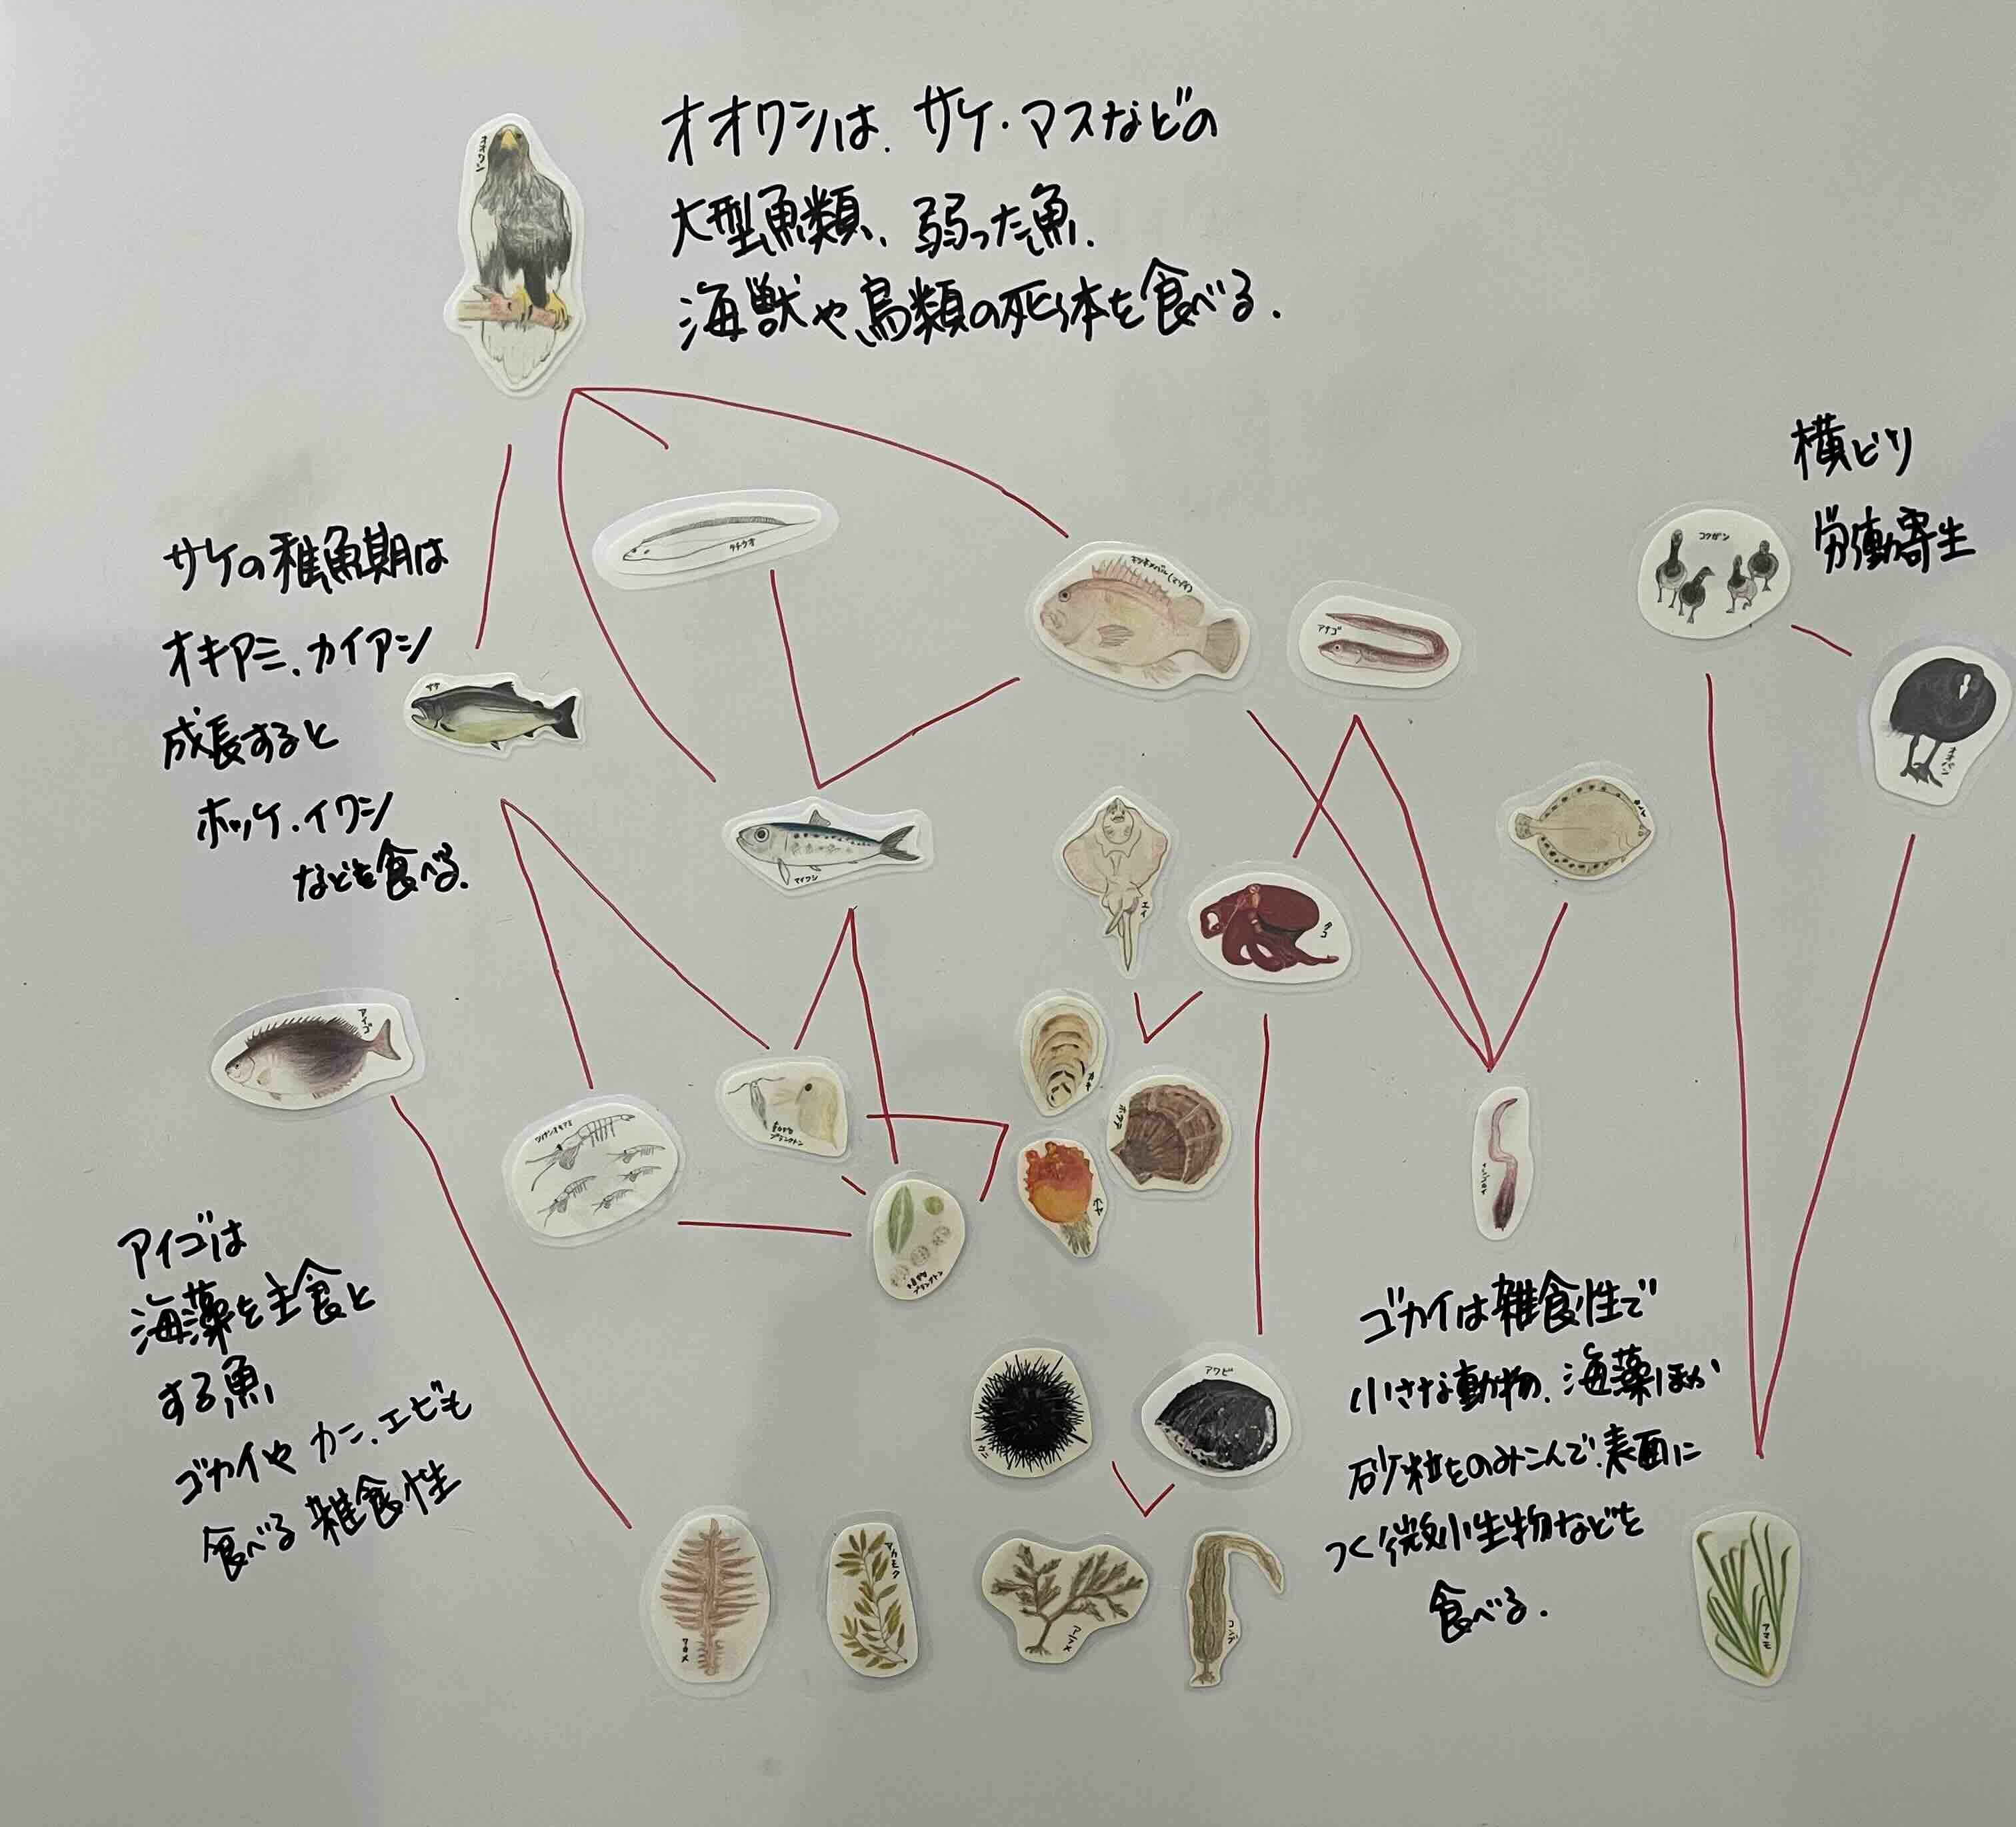 オオワシは、サケ・マスなどの
大型魚類、弱った魚、
海獣や鳥類の死体を食べる.
オオワシ
横どり
労働寄生
コクガン
オオバン
タチウオ
アナゴ
サケの稚魚期は
オキアミ、カイアシ
成長すると
ホッケ・イワシ
なども食べる.
サケ
マイワシ
エイ
タコ
アイゴ
カキ
ホタテ
ホヤ
アイゴは
海藻を主食と
する魚
ゴカイや カニ、エビも
食べる 雑食性
ウニ
アワビ
ゴカイは雑食性で
小さな動物、海藻ほか
砂粒をのみこんで、表面に
つく微小生物などを
食べる.
ワカメ
アカモク
アラメ
コンブ
アマモ